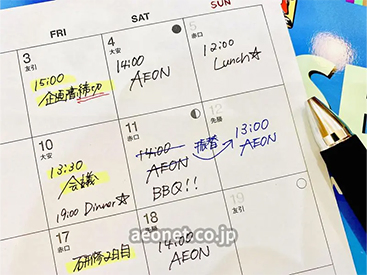 FRI
SAT
SUN
3
友引
15:00
企画書締切
4
大安
14:00
AEON
5
赤口
12:00
Lunch☆
10
大安
13:30
会議
19:00 Dinner☆
11
赤口
14:00
AEON
振替
BBQ!!
12
先勝
13:00
AEON
17
赤口
研修2日目
18
先勝
14:00
AEON
19
友引
aeonet.co.jp